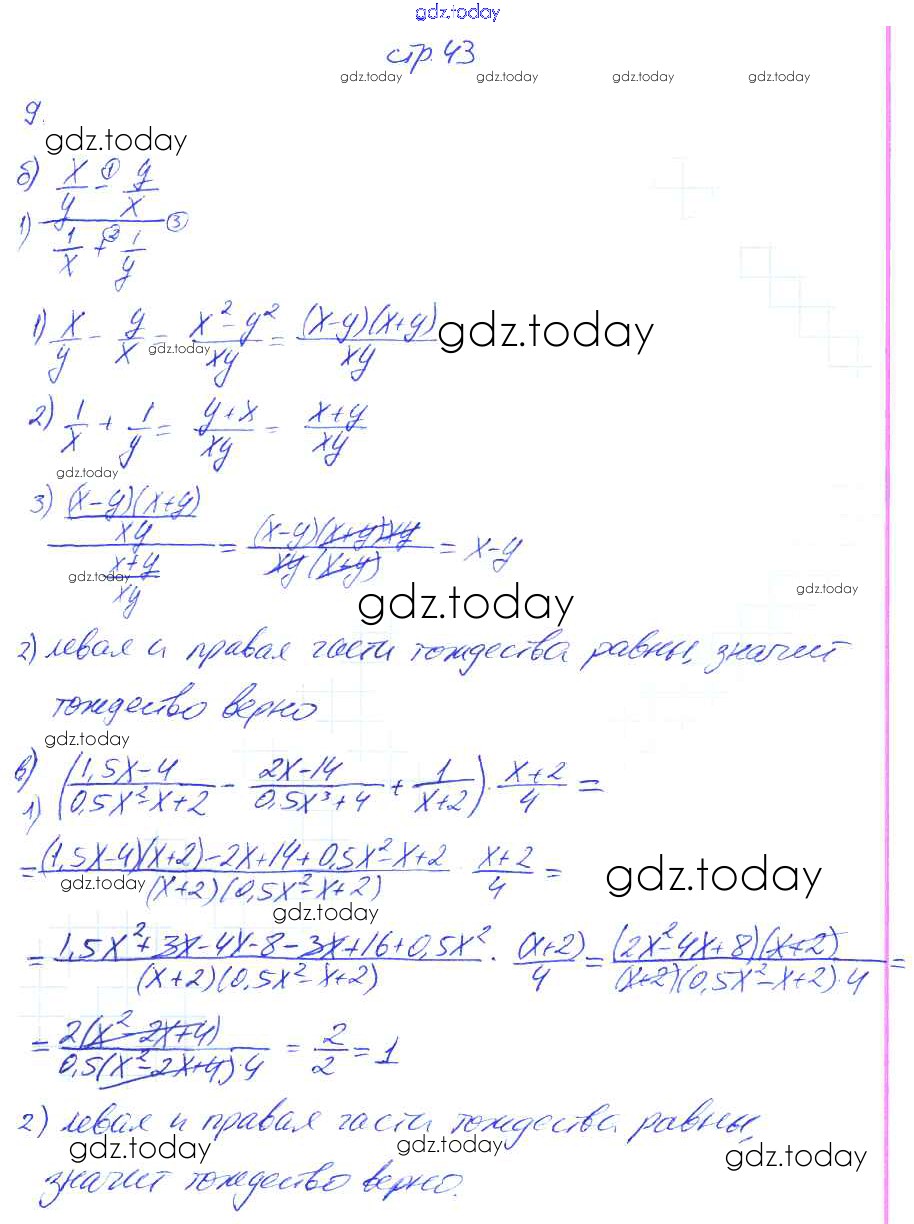 gdz.today
стр. 43
gdz.today gdz.today gdz.today gdz.today
9.
gdz.today
б)
1) (x/y - ① y/x) / (1/x + ② 1/y) ③
1) x/y - y/x = (x² - y²)/xy = (x-y)(x+y)/xy
gdz.today gdz.today
2) 1/x + 1/y = (y+x)/xy = (x+y)/xy
gdz.today
3) ((x-y)(x+y)/xy) / ((x+y)/xy) = (x-y)(x+y)xy / xy(x+y) = x-y
gdz.today gdz.today
gdz.today
2) левая и правая части тождества равны, значит
тождество верно
gdz.today
в)
1) ((1,5x-4)/(0,5x²-x+2) - (2x-14)/(0,5x³+4) + 1/(x+2)) · (x+2)/4 =
= ((1,5x-4)(x+2)-2x+14+0,5x²-x+2)/((x+2)(0,5x²-x+2)) · (x+2)/4 =
gdz.today gdz.today
gdz.today
= (1,5x²+3x-4x-8-3x+16+0,5x²)/((x+2)(0,5x²-x+2)) · (x+2)/4 = (2x²-4x+8)(x+2)/((x+2)(0,5x²-x+2)·4) =
= 2(x²-2x+4)/(0,5(x²-2x+4)·4) = 2/2 = 1
2) левая и правая части тождества равны,
gdz.today gdz.today gdz.today
значит тождество верно.